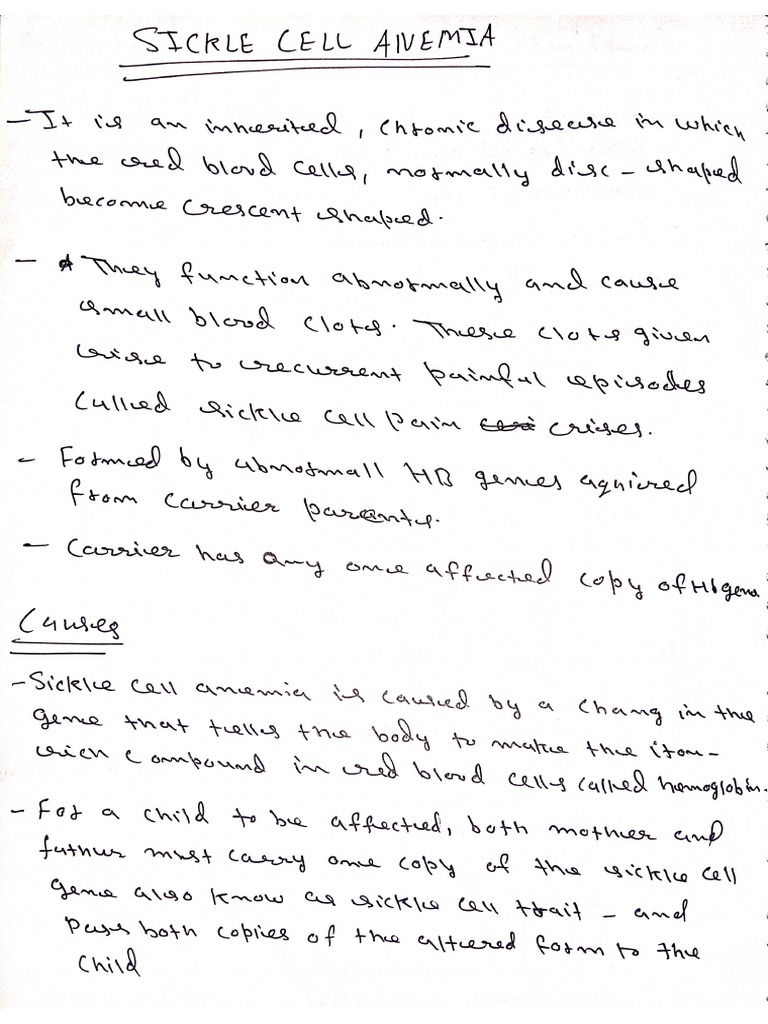 SICKLE CELL ANEMIA
- It is an inherited, chronic disease in which
the red blood cells, normally disc - shaped
become crescent shaped.
- They function abnormally and cause
small blood clots. These clots given
rise to recurrent painful episodes
Called sickle cell pain crises.
- Formed by abnormall HB genes aquired
from carrier parents.
- Carrier has any one affected copy of Hb gene
Causes
- Sickle cell anemia is caused by a chang in the
gene that tells the body to make the iron-
rich compound in red blood cells called hemoglobin.
- For a child to be affected, both mother and
father must carry one copy of the sickle cell
gene also know as sickle cell trait - and
pass both copies of the altered form to the
child